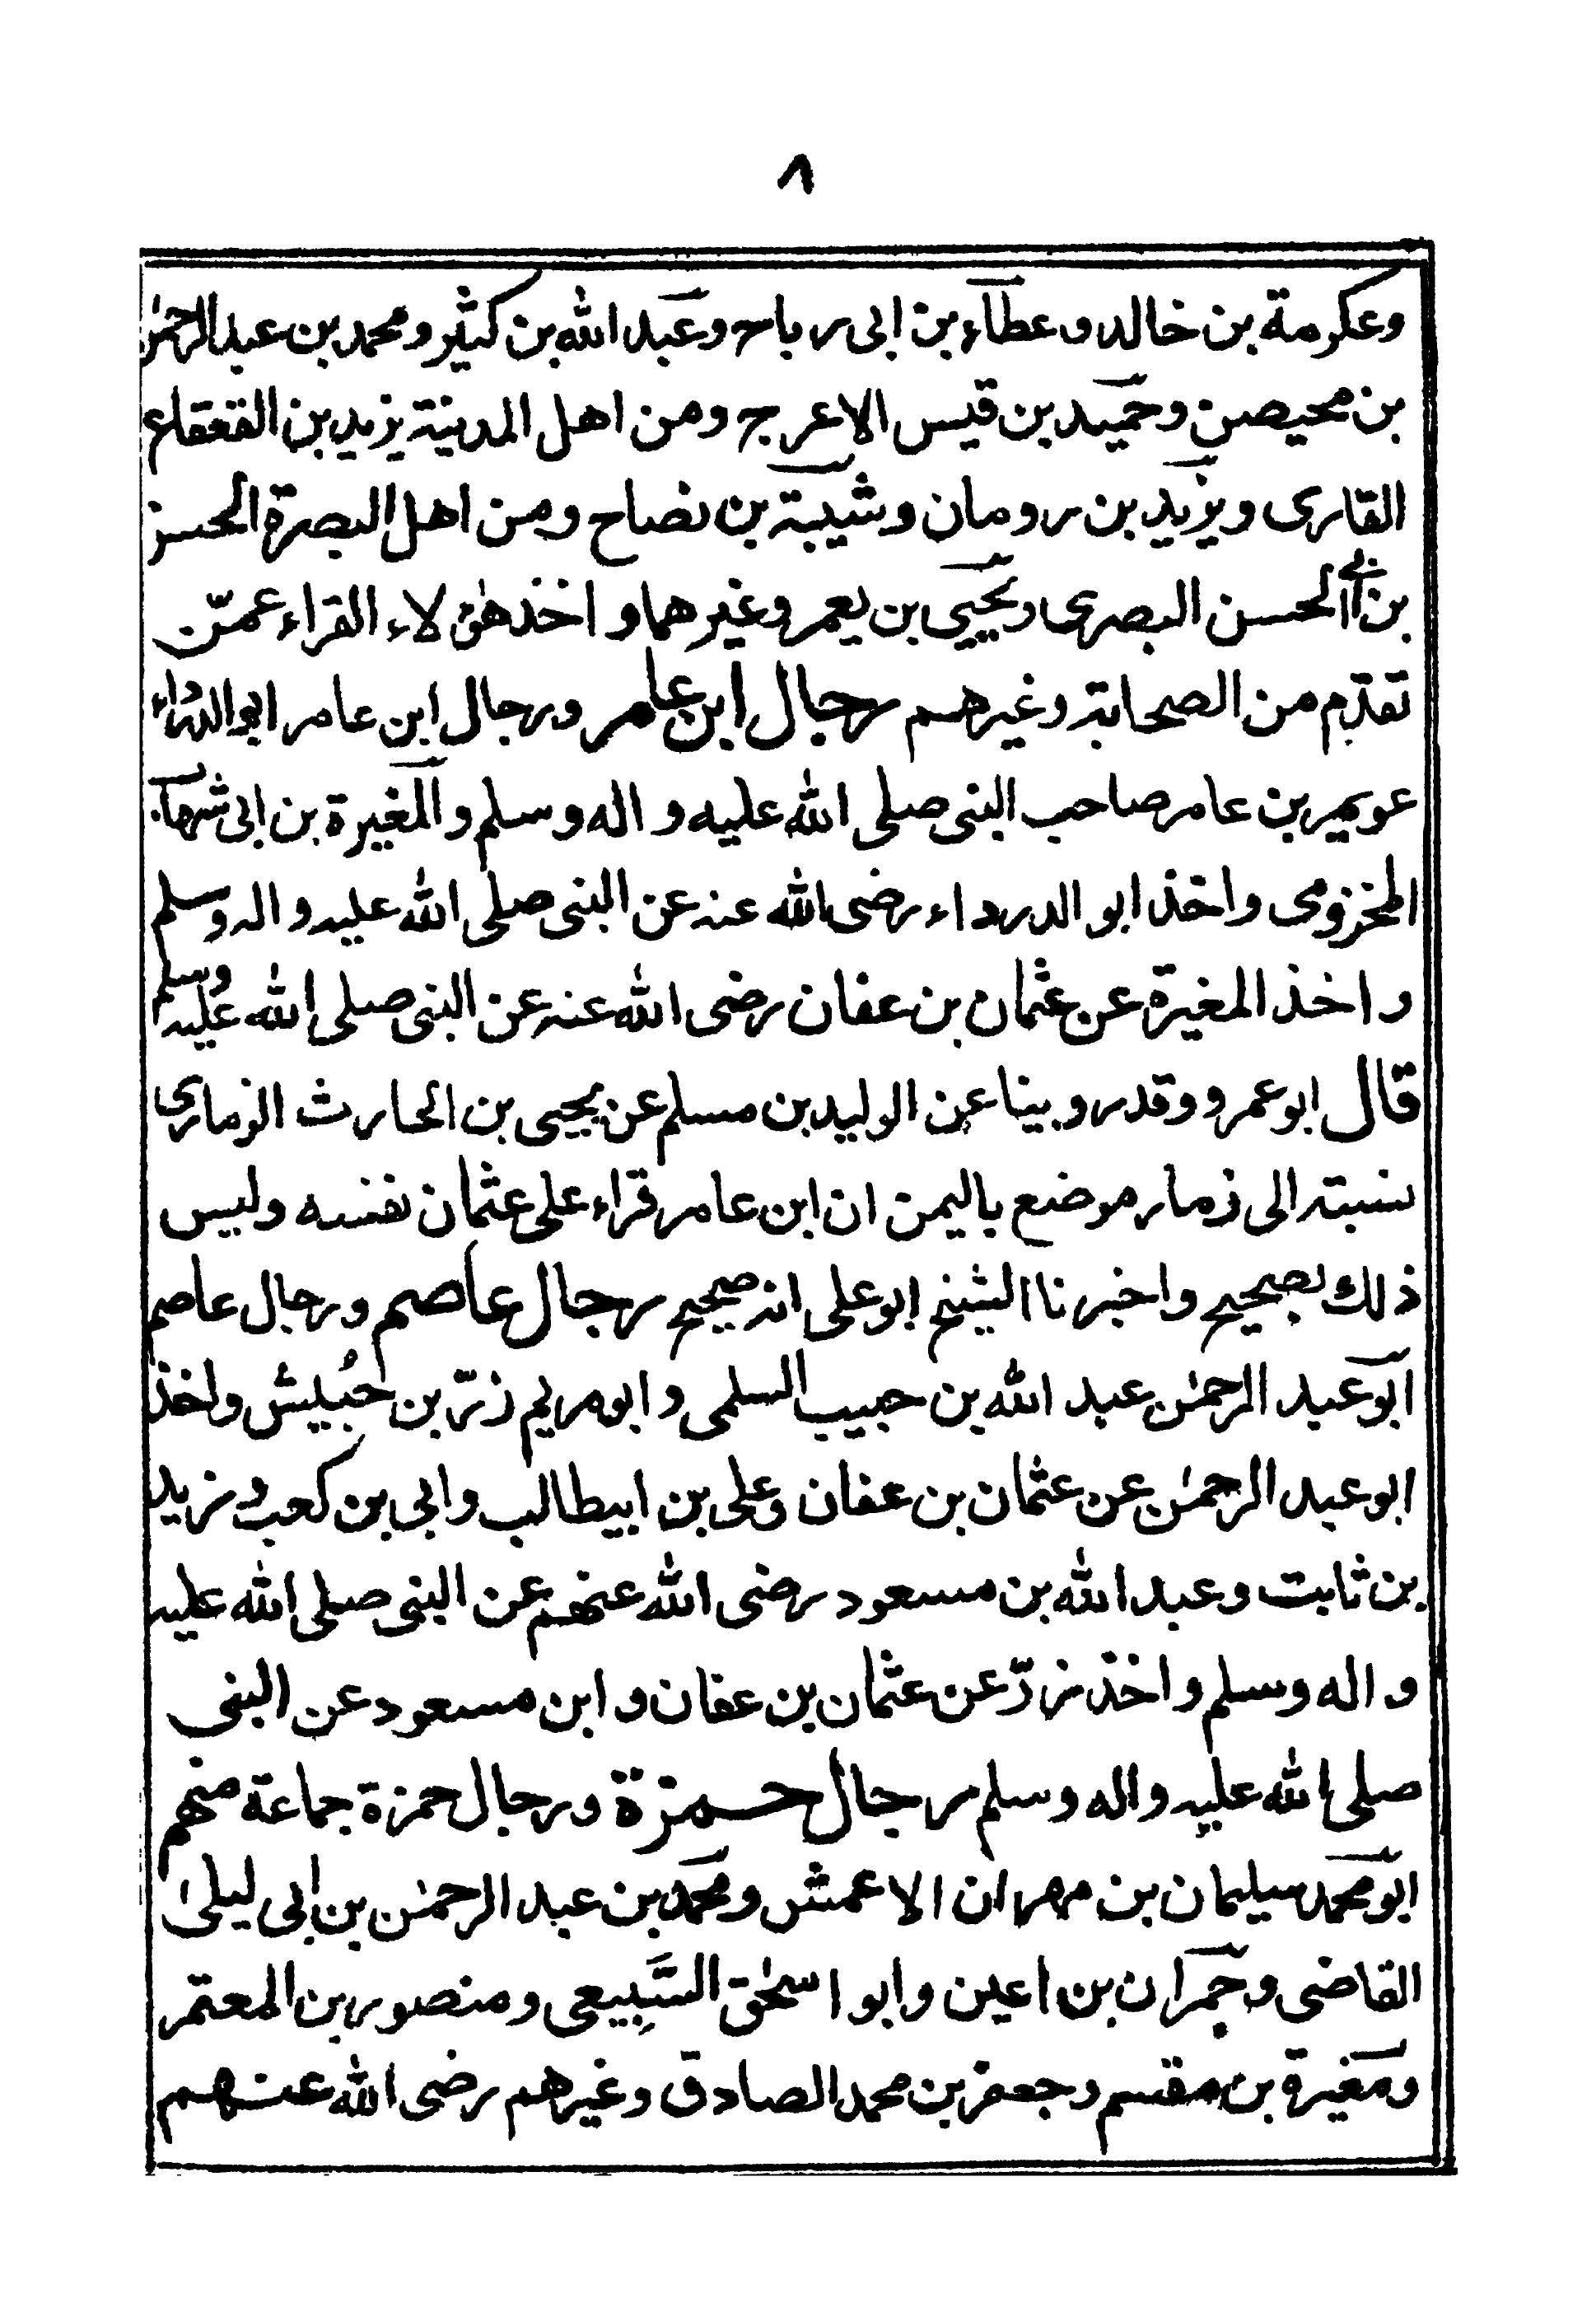 ٨
وعكرمة بن خالد وعطاء بن ابى رباح وعبد الله بن كثير ومحمد بن عبد الرحمٰن
بن محيصن وحميد بن قيس الاعرج ومن اهل المدينة يزيد بن القعقاع
القارى ويزيد بن رومان وشيبة بن نصاح ومن اهل البصرة الحسن
بن ابى الحسن البصرى ويحيى بن يعمر وغيرهما واخذ هٰؤلاء القراء عمّن
تقدّم من الصحابة وغيرهم رجال ابن عامر ورجال ابن عامر ابو الدرداء
عويمر بن عامر صاحب النبى صلى الله عليه واله وسلم والمغيرة بن ابى شهاب
المخزومى واخذ ابو الدرداء رضى الله عنه عن النبى صلى الله عليه واله وسلم
واخذ المغيرة عن عثمان بن عفان رضى الله عنه عن النبى صلى الله عليه وسلم
قال ابو عمرو وقد روينا عن الوليد بن مسلم عن يحيى بن الحارث الزمارى
نسبته الى ذمار موضع باليمن ان ابن عامر قراء على عثمان نفسه وليس
ذلك بصحيح واخبرنا الشيخ ابو على انه صحيح رجال عاصم ورجال عاصم
ابو عبد الرحمٰن عبد الله بن حبيب السلمى وابو مريم زرّ بن حُبيش واخذ
ابو عبد الرحمٰن عن عثمان بن عفان وعلى بن ابيطالب وابى بن كعب وزيد
بن ثابت وعبد الله بن مسعود رضى الله عنهم عن النبى صلى الله عليه
واله وسلم واخذ زرّ عن عثمان بن عفان وابن مسعود عن النبى
صلى الله عليه واله وسلم رجال حمزة ورجال حمزة جماعة منهم
ابو محمد سليمان بن مهران الاعمش ومحمد بن عبد الرحمٰن بن ابى ليلىٰ
القاضى وحمران بن اعين وابو اسحٰق السَّبِيعى ومنصور بن المعتمر
ومغيرة بن مقسم وجعفر بن محمد الصادق وغيرهم رضى الله عنهم